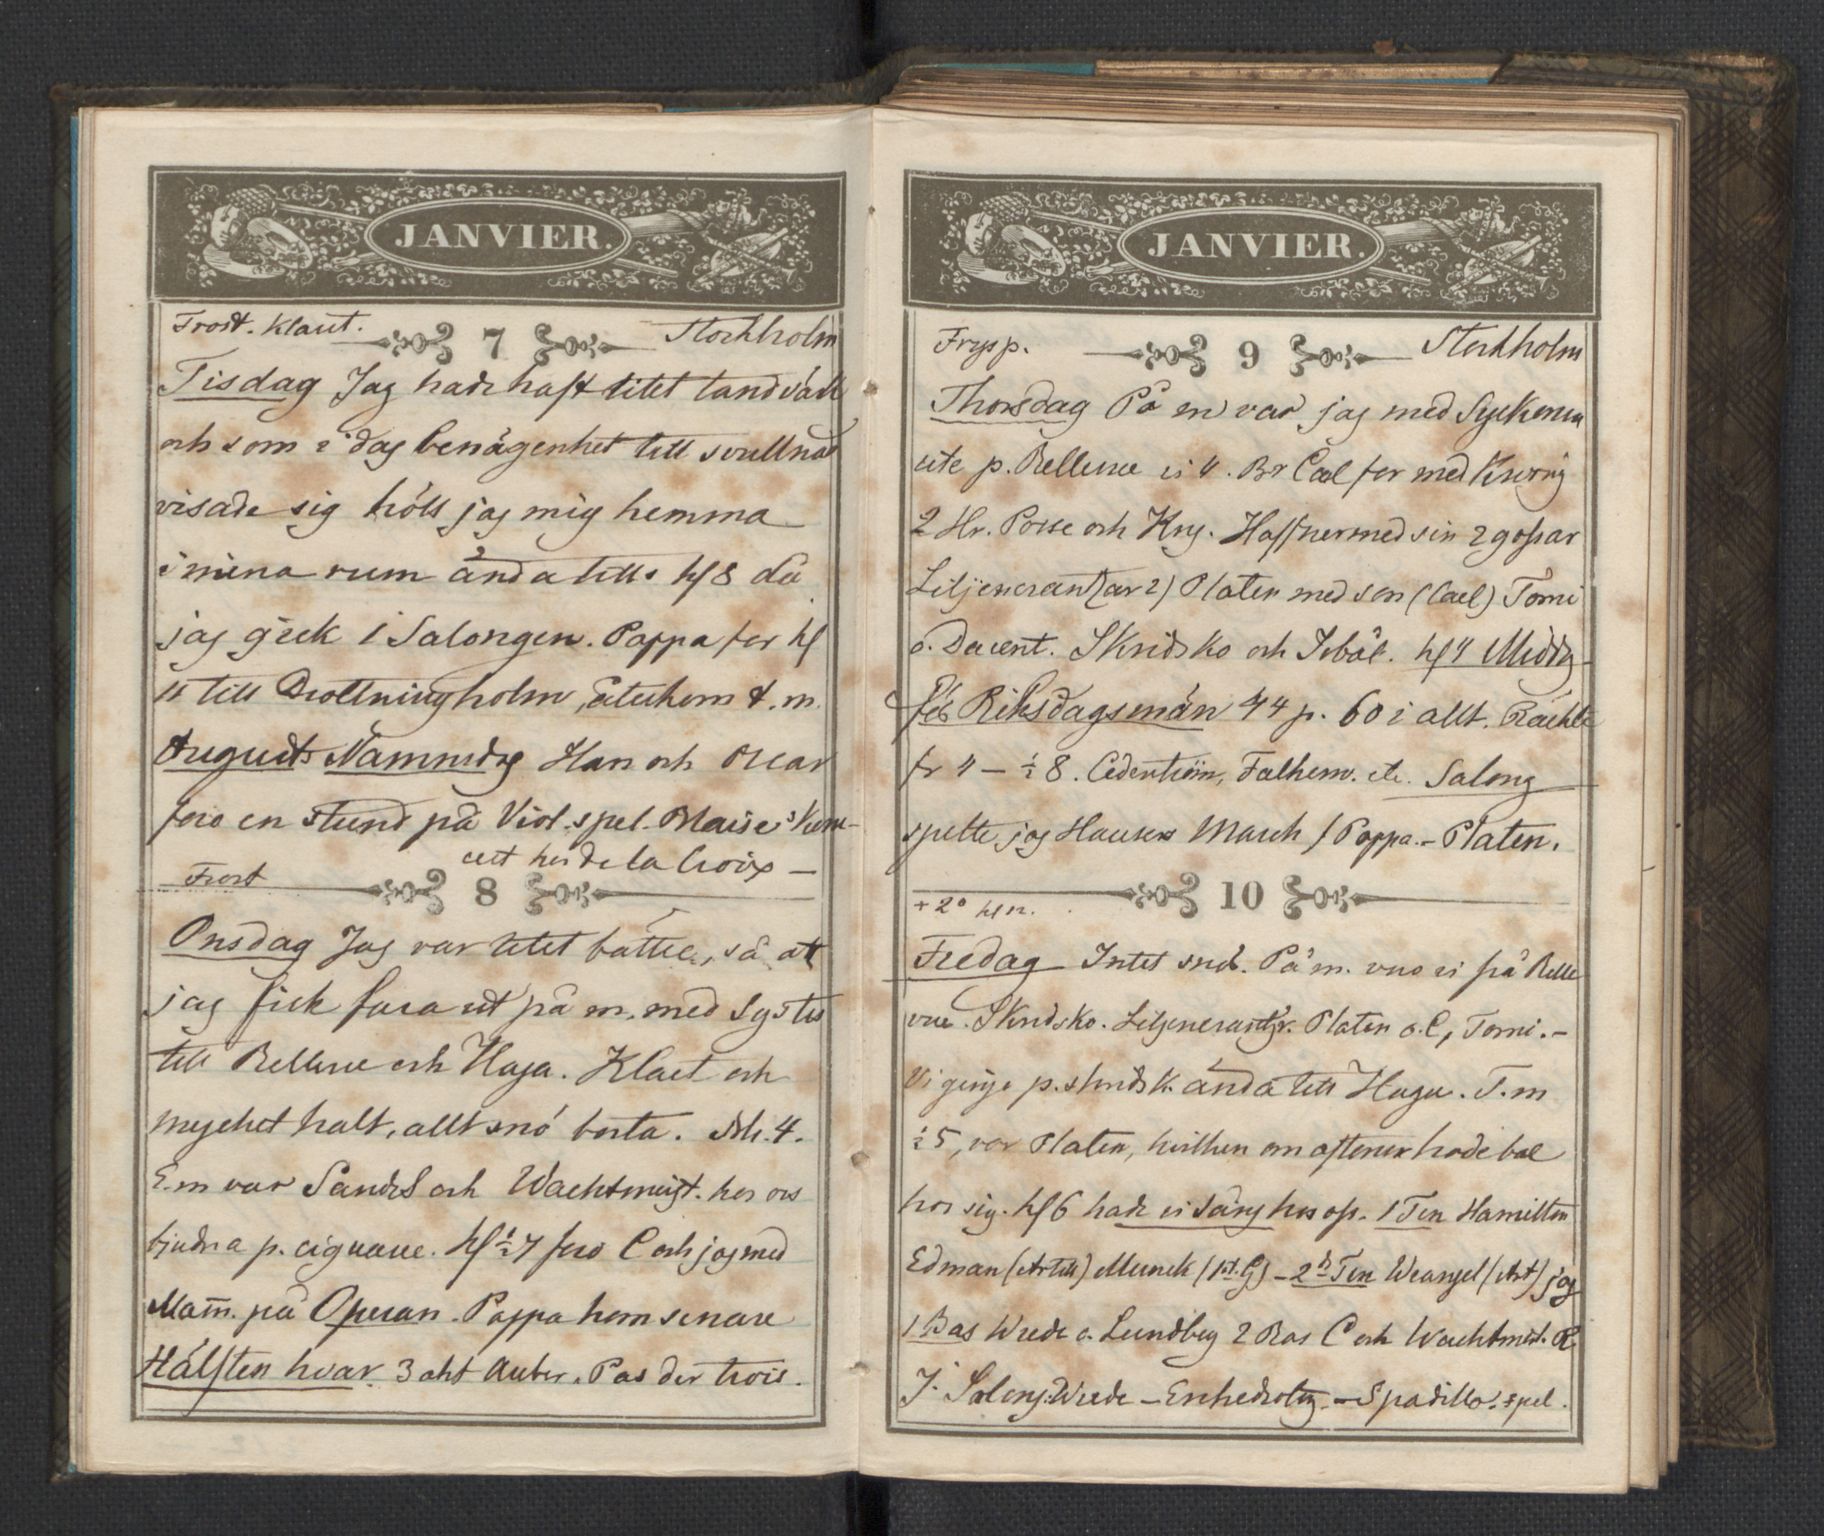 JANVIER.
Frost. Klart. 7 Stockholm
Tisdag Jag hade haft litet tandvärk
och som i dag benägenhet till svullnad
visade sig höll jag mig hemma
i mina rum ända till kl 8 då
jag gick i Salongen. Pappa for kl
11 till Drottningholm, återkom t. m.
Augusts Namnsdag Han och Oscar
foro en stund på Viol. spel. Maise
cert hos de la Croix –
Frost 8
Onsdag Jag var litet bättre, så att
jag fick fara ut på m. med Syster
till Bellevue och Haga. Klart och
mycket halt, allt snö borta. Sch. 4.
E.m var Sandels och Wachtmeist. hos oss
bjudna p. cigrarre. Kl ½ 7 foro C och jag med
Mam̅. på Operan. Pappa kom senare
Hälften hvar. 3 akt Auber. Pas der trois.
JANVIER.
Frysp. 9 Stockholm
Thorsdag På m var jag med Syskonen
ute p. Bellevue
2 Hr. Posse och Kry. Haffner med sin 2 gossar
Liljencrantzar 2) Platen med son (Carl) Torni
o. Dacent. Skridsko och Isbåt. kl 4 Middg
för Riksdagsmän 44 p. 60 i allt. Räckte
fr 4 – ½ 8. Cederström, Falhem. etc. Salong
spelte jag Hausers March f Pappa. – Platen.
+2° kl 12. 10
Fredag Intet snö. På m. voro vi på Belle
vue. Skridsko. Liljencrantzr. Platen o. C, Torni. –
Vi gingo p. skridsk. ända till Haga. T. m
½ 5, var Platen, hvilken om aftonen hade bal
hos sig. kl 6 hade vi sång hos oss. 1 Ten Hamilton
Edman (Artill) Munck (1st. G) – 2d Ten Wrangel (Art) jag
1 Bas Wrede o. Lundberg 2 Bas C och Wachtmst. R.
I. Salong. Wrede – – Spadillo. spel.